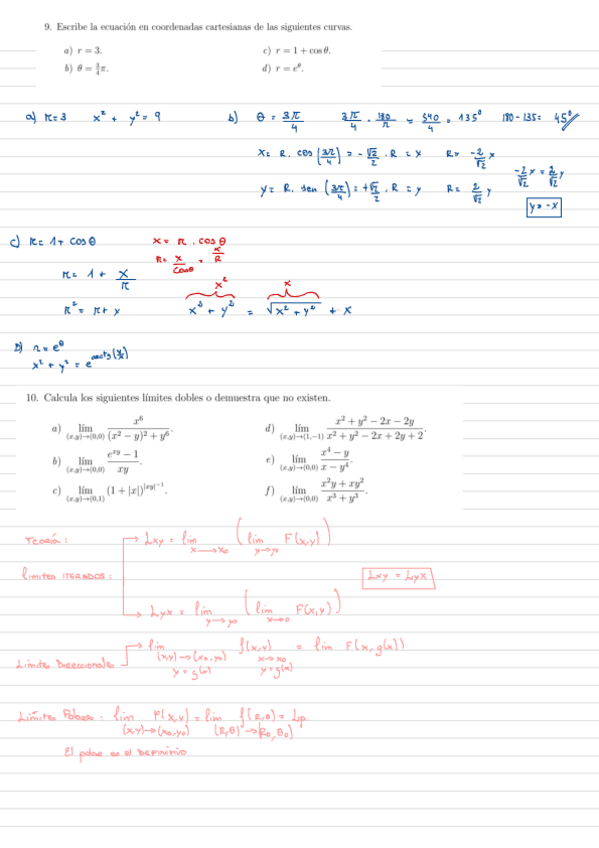 9. Escribe la ecuación en coordenadas cartesianas de las siguientes curvas.
a) r = 3.
c) r = 1 + cos θ.
b) θ = 3/4 π.
d) r = e^θ.
a) r=3 x² + y² = 9
b) θ = 3π/4 3π/4 · 180/π = 540/4 = 135° 180-135 = 45°
x = R. cos (3π/4) = -√2/2 . R = x R= -2/√2 x
-2/√2 x = 2/√2 y
y = R. sen (3π/4) = +√2/2 . R = y R= 2/√2 y
y = -x
c) r = 1 + cos θ x = r . cos θ
R = x/cos θ = x/R
r = 1 + x/r
x² x
r² = r + x x² + y² = √x² + y² + x
D) r = e^θ
x² + y² = e^arctg(y/x)
10. Calcula los siguientes límites dobles o demuestra que no existen.
a) lím (x,y)→(0,0) x⁶/((x² − y)² + y⁶).
d) lím (x,y)→(1,−1) (x² + y² − 2x − 2y)/(x² + y² − 2x + 2y + 2).
b) lím (x,y)→(0,0) (e^xy − 1)/xy.
e) lím (x,y)→(0,0) (x⁴ − y)/(x − y⁴).
c) lím (x,y)→(0,1) (1 + |x|)^|xy|⁻¹.
f) lím (x,y)→(0,0) (x²y + xy²)/(x³ + y³).
Teoría: Lxy = lim x→x₀ (lim y→y₀ F(x,y))
limites ITERADOS: Lxy = Lyx
Lyx = lim y→y₀ (lim x→0 F(x,y))
Limites Direccionales lim (x,y)→(x₀,y₀) y = g(x) f(x,y) x→x₀ y=g(x) = lim F(x, g(x))
Limites Polares: lim (x,y)→(x₀,y₀) F(x,y) = lim (R,θ)→R₀,θ₀) f(R,θ) = Lp.
El polar es el DEFINITIVO